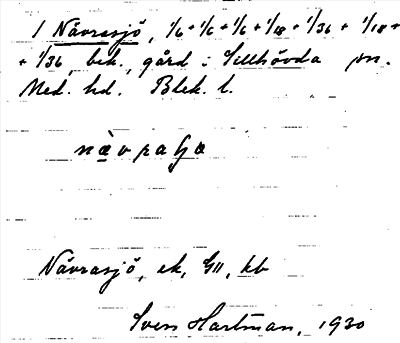 1 Nävrasjö, 1/6 + 1/6 + 1/6 + 1/18 + 1/36 + 1/18 +
+ 1/36, bek., gård i Tillhövda sn.
Med. hd. Blek. l.
Nävrasjö, ek, GII, kb
Sven Hartman, 1930